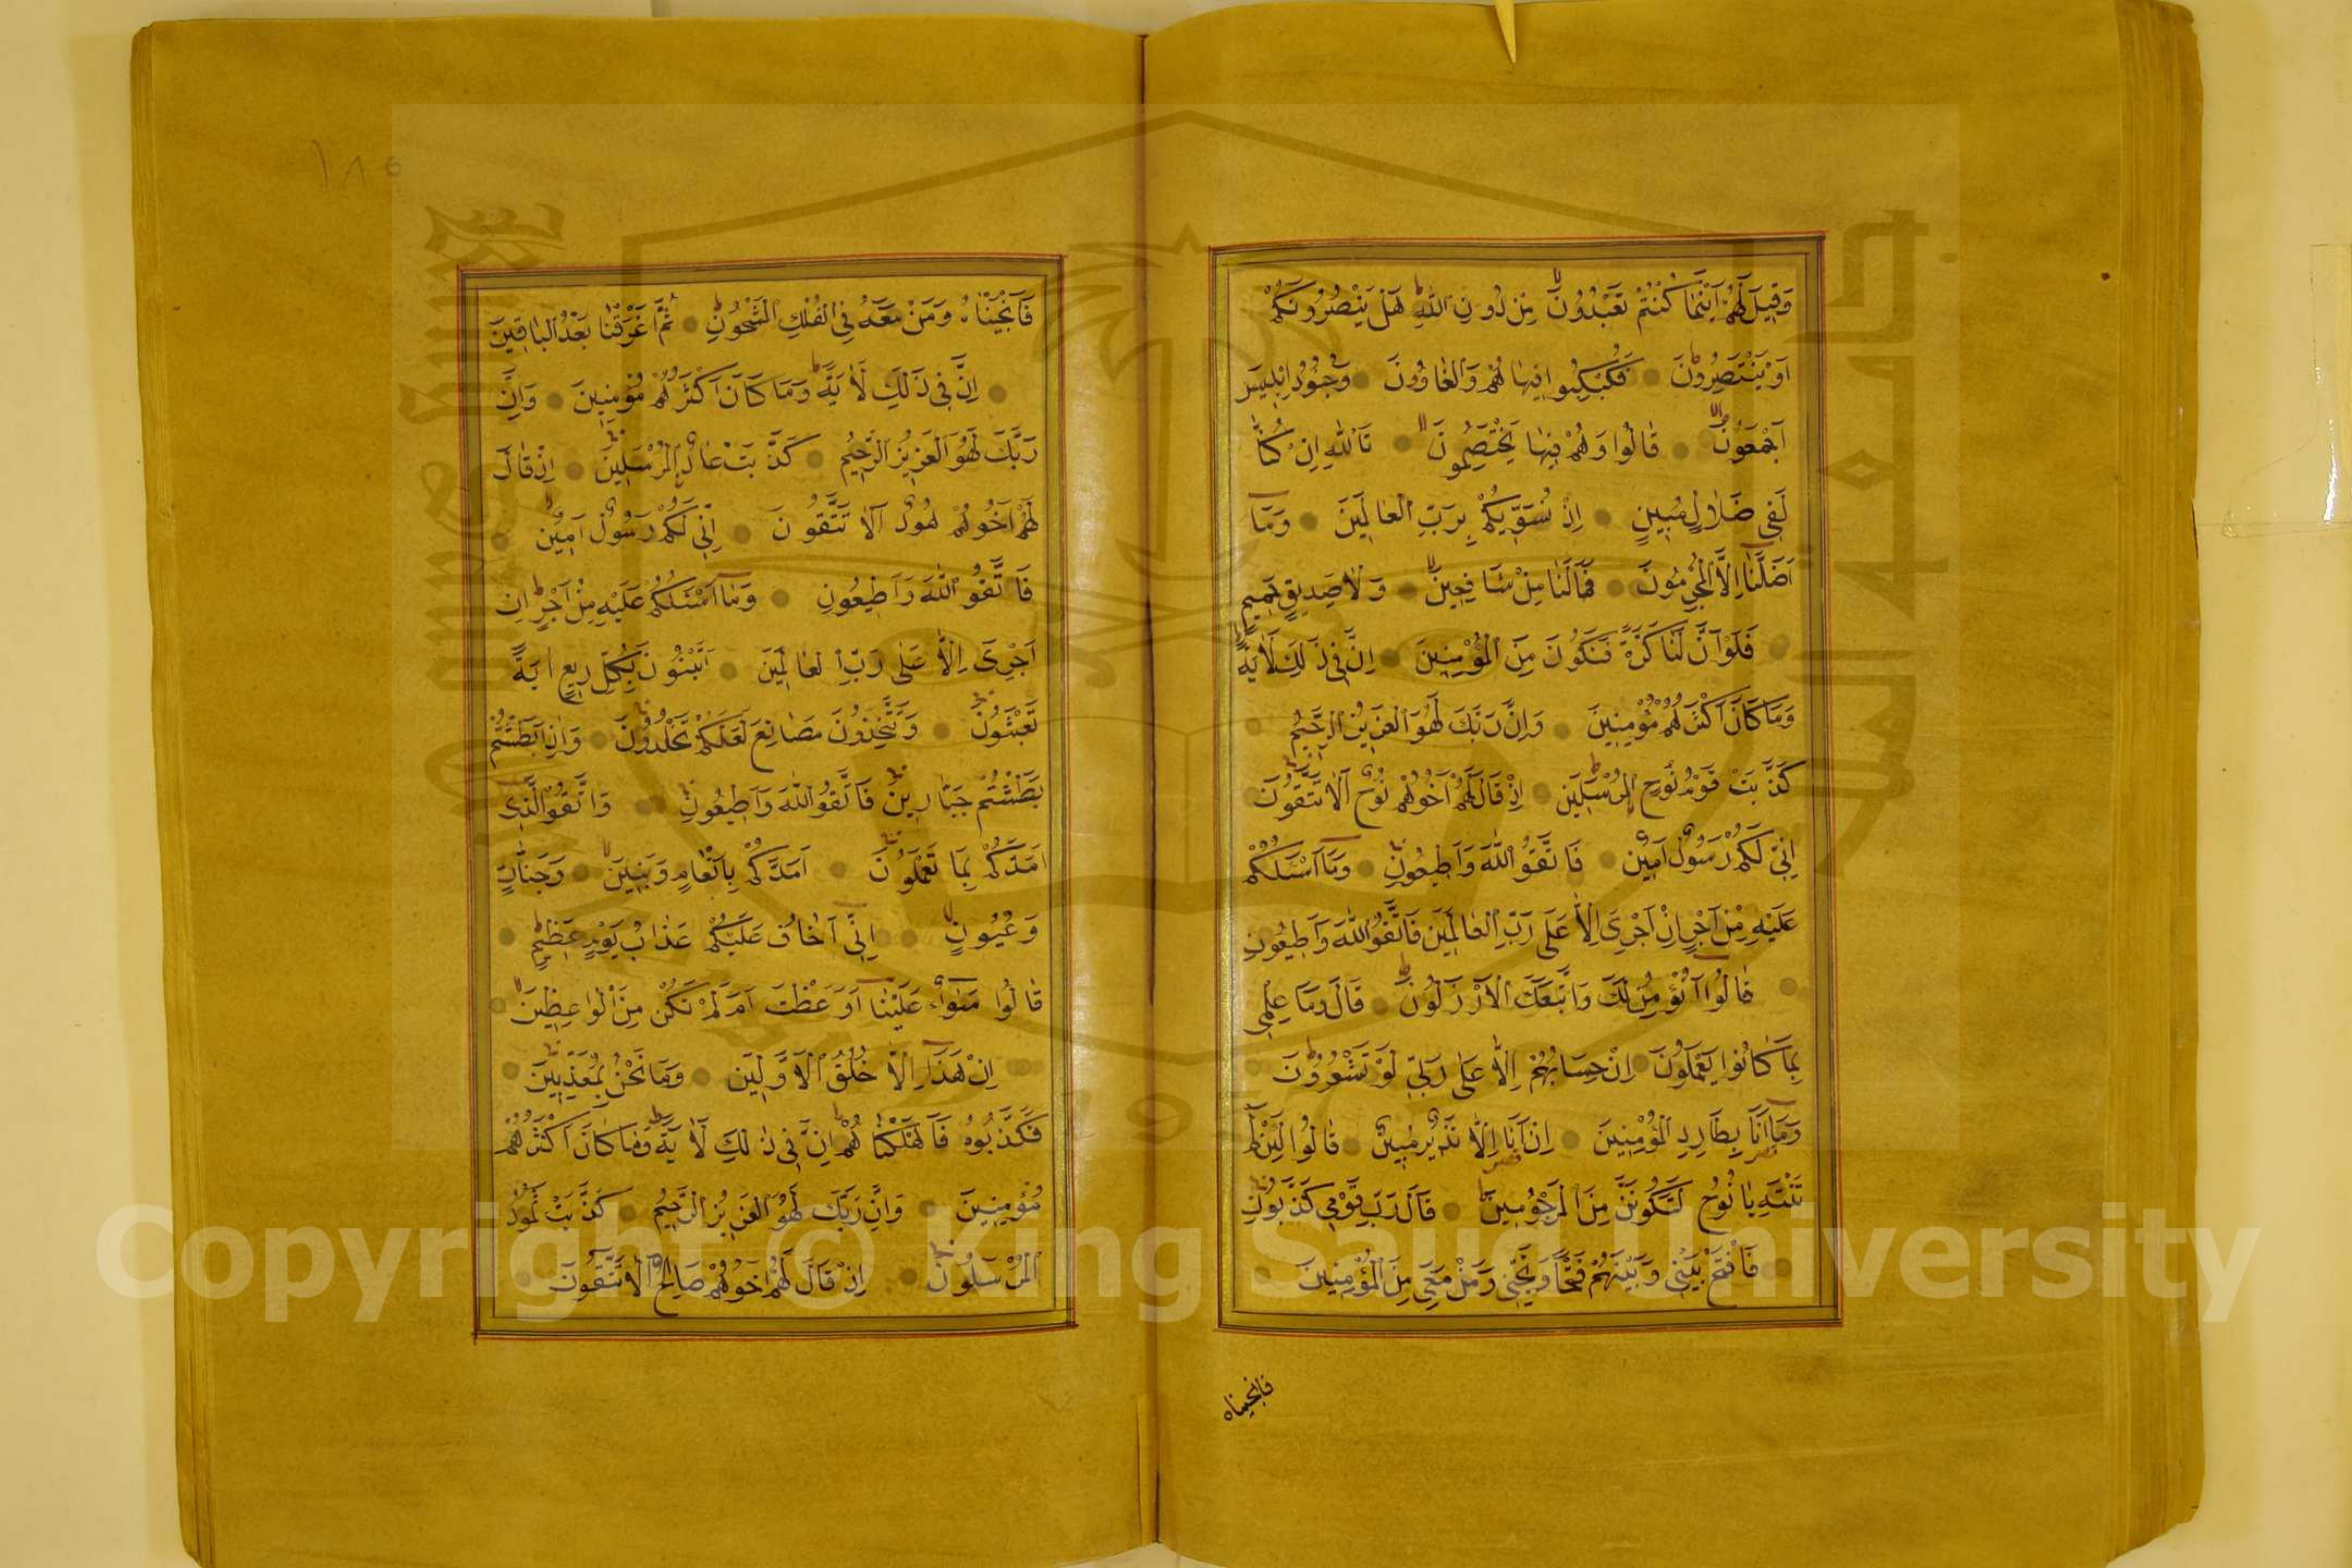 وَقِيلَ لَهُمْ اَيْنَمَا كُنْتُمْ تَعْبُدُونَ مِنْ دُونِ اللّٰهِ هَلْ يَنْصُرُونَكُمْ
اَوْ يَنْتَصِرُونَ فَكُبْكِبُوا فِيهَا هُمْ وَالْغَاوُونَ وَجُنُودُ اِبْلِيسَ
اَجْمَعُونَ قَالُوا وَهُمْ فِيهَا يَخْتَصِمُونَ تَاللّٰهِ اِنْ كُنَّا
لَفِي ضَلَالٍ مُبِينٍ اِذْ نُسَوِّيكُمْ بِرَبِّ الْعَالَمِينَ وَمَا
اَضَلَّنَا اِلَّا الْمُجْرِمُونَ فَمَا لَنَا مِنْ شَافِعِينَ وَلَا صَدِيقٍ حَمِيمٍ
فَلَوْ اَنَّ لَنَا كَرَّةً فَنَكُونَ مِنَ الْمُؤْمِنِينَ اِنَّ فِي ذٰلِكَ لَاٰيَةً
وَمَا كَانَ اَكْثَرُهُمْ مُؤْمِنِينَ وَاِنَّ رَبَّكَ لَهُوَ الْعَزِيزُ الرَّحِيمُ
كَذَّبَتْ قَوْمُ نُوحٍ الْمُرْسَلِينَ اِذْ قَالَ لَهُمْ اَخُوهُمْ نُوحٌ اَلَا تَتَّقُونَ
اِنِّي لَكُمْ رَسُولٌ اَمِينٌ فَاتَّقُوا اللّٰهَ وَاَطِيعُونِ وَمَا اَسْئَلُكُمْ
عَلَيْهِ مِنْ اَجْرٍ اِنْ اَجْرِيَ اِلَّا عَلٰى رَبِّ الْعَالَمِينَ فَاتَّقُوا اللّٰهَ وَاَطِيعُونِ
قَالُوا اَنُؤْمِنُ لَكَ وَاتَّبَعَكَ الْاَرْذَلُونَ قَالَ وَمَا عِلْمِي
بِمَا كَانُوا يَعْمَلُونَ اِنْ حِسَابُهُمْ اِلَّا عَلٰى رَبِّي لَوْ تَشْعُرُونَ
وَمَا اَنَا بِطَارِدِ الْمُؤْمِنِينَ اِنْ اَنَا اِلَّا نَذِيرٌ مُبِينٌ قَالُوا لَئِنْ لَمْ
تَنْتَهِ يَا نُوحُ لَتَكُونَنَّ مِنَ الْمَرْجُومِينَ قَالَ رَبِّ اِنَّ قَوْمِي كَذَّبُونِ
فَافْتَحْ بَيْنِي وَبَيْنَهُمْ فَتْحًا وَنَجِّنِي وَمَنْ مَعِيَ مِنَ الْمُؤْمِنِينَ
فانجيناه
١٨٥
فَاَنْجَيْنَاهُ وَمَنْ مَعَهُ فِي الْفُلْكِ الْمَشْحُونِ ثُمَّ اَغْرَقْنَا بَعْدُ الْبَاقِينَ
اِنَّ فِي ذٰلِكَ لَاٰيَةً وَمَا كَانَ اَكْثَرُهُمْ مُؤْمِنِينَ وَاِنَّ
رَبَّكَ لَهُوَ الْعَزِيزُ الرَّحِيمُ كَذَّبَتْ عَادٌ الْمُرْسَلِينَ اِذْ قَالَ
لَهُمْ اَخُوهُمْ هُودٌ اَلَا تَتَّقُونَ اِنِّي لَكُمْ رَسُولٌ اَمِينٌ
فَاتَّقُوا اللّٰهَ وَاَطِيعُونِ وَمَا اَسْئَلُكُمْ عَلَيْهِ مِنْ اَجْرٍ اِنْ
اَجْرِيَ اِلَّا عَلٰى رَبِّ الْعَالَمِينَ اَتَبْنُونَ بِكُلِّ رِيعٍ اٰيَةً
تَعْبَثُونَ وَتَتَّخِذُونَ مَصَانِعَ لَعَلَّكُمْ تَخْلُدُونَ وَاِذَا بَطَشْتُمْ
بَطَشْتُمْ جَبَّارِينَ فَاتَّقُوا اللّٰهَ وَاَطِيعُونِ وَاتَّقُوا الَّذِي
اَمَدَّكُمْ بِمَا تَعْلَمُونَ اَمَدَّكُمْ بِاَنْعَامٍ وَبَنِينَ وَجَنَّاتٍ
وَعُيُونٍ اِنِّي اَخَافُ عَلَيْكُمْ عَذَابَ يَوْمٍ عَظِيمٍ
قَالُوا سَوَاءٌ عَلَيْنَا اَوَعَظْتَ اَمْ لَمْ تَكُنْ مِنَ الْوَاعِظِينَ
اِنْ هٰذَا اِلَّا خُلُقُ الْاَوَّلِينَ وَمَا نَحْنُ بِمُعَذَّبِينَ
فَكَذَّبُوهُ فَاَهْلَكْنَاهُمْ اِنَّ فِي ذٰلِكَ لَاٰيَةً وَمَا كَانَ اَكْثَرُهُمْ
مُؤْمِنِينَ وَاِنَّ رَبَّكَ لَهُوَ الْعَزِيزُ الرَّحِيمُ كَذَّبَتْ ثَمُودُ
الْمُرْسَلُونَ اِذْ قَالَ لَهُمْ اَخُوهُمْ صَالِحٌ اَلَا تَتَّقُونَ
Copyright © King Saud University